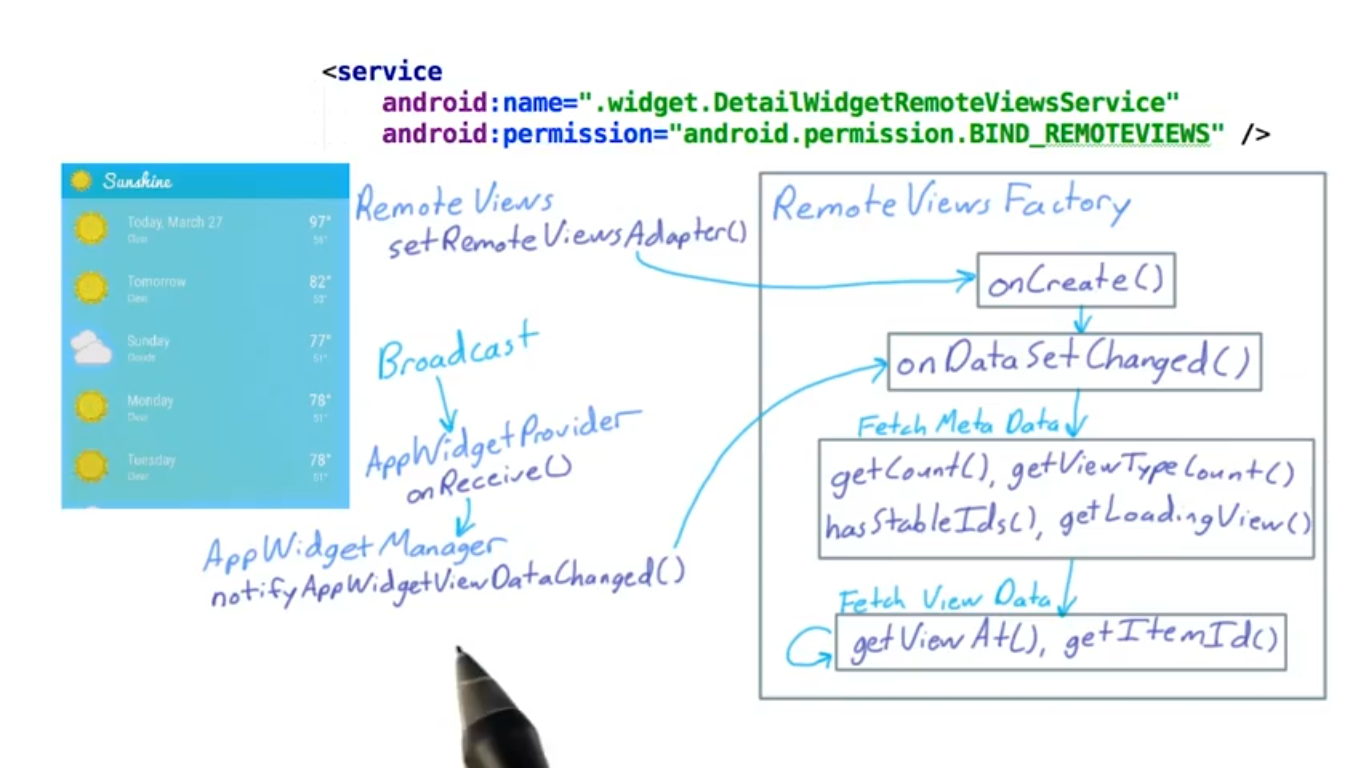 <service
android:name=".widget.DetailWidgetRemoteViewsService"
android:permission="android.permission.BIND_REMOTEVIEWS" />
Sunshine
Today, March 27 97°
Clear 56°
Tomorrow 82°
Clear 52°
Sunday 77°
Clouds 51°
Monday 78°
Clear 51°
Tuesday 78°
Clear 51°
Remote Views
setRemoteViewsAdapter()
Broadcast
AppWidgetProvider
onReceive()
AppWidgetManager
notifyAppWidgetViewDataChanged()
Remote Views Factory
onCreate()
onDataSetChanged()
Fetch Meta Data
getCount(), getViewTypeCount()
hasStableIds(), getLoadingView()
Fetch View Data
getViewAt(), getItemId()